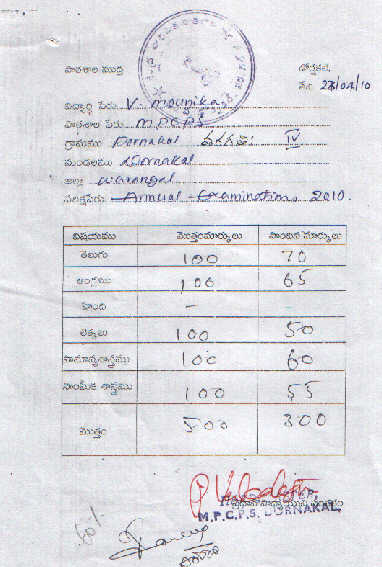 పాఠశాల ముద్ర
డోర్నకల్,
తేది. 23/04/10
విద్యార్థి పేరు V. mounika
పాఠశాల పేరు M.P.C.P.S
గ్రామము Dornakal తరగతి IV
మండలము Dornakal
జిల్లా Warangal
పరీక్షపేరు Annual - Examinations 2010.
విషయము మొత్తంమార్కులు సాధించిన మార్కులు
తెలుగు 100 70
ఆంగ్లము 100 65
హింది -
లెక్కలు 100 50
సామాన్యశాస్త్రము 100 60
సాంఘీక శాస్త్రము 100 55
మొత్తం 500 300
M.P.C.P.S. DORNAKAL.
60%